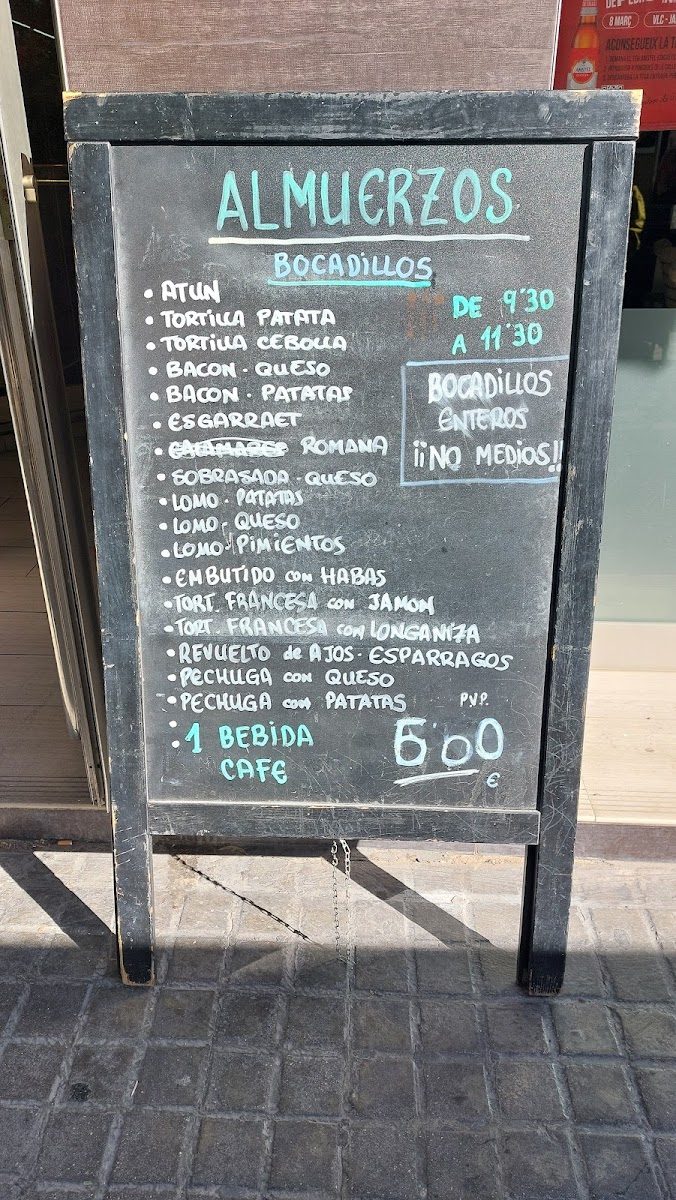 8 MARÇ
ACONSEGUEIX LA
ALMUERZOS
BOCADILLOS
• ATUN
• TORTILLA PATATA
• TORTILLA CEBOLLA
• BACON - QUESO
• BACON - PATATAS
• ESGARRAET
• CALAMARES ROMANA
• SOBRASADA - QUESO
• LOMO - PATATAS
• LOMO - QUESO
• LOMO - PIMIENTOS
• EMBUTIDO con HABAS
• TORT. FRANCESA con JAMON
• TORT. FRANCESA con LONGANIZA
• REVUELTO de AJOS - ESPARRAGOS
• PECHUGA con QUESO
• PECHUGA con PATATAS
DE 9'30
A 11'30
BOCADILLOS
ENTEROS
¡¡NO MEDIOS!!
1 BEBIDA
CAFE
P.V.P.
6'00
€